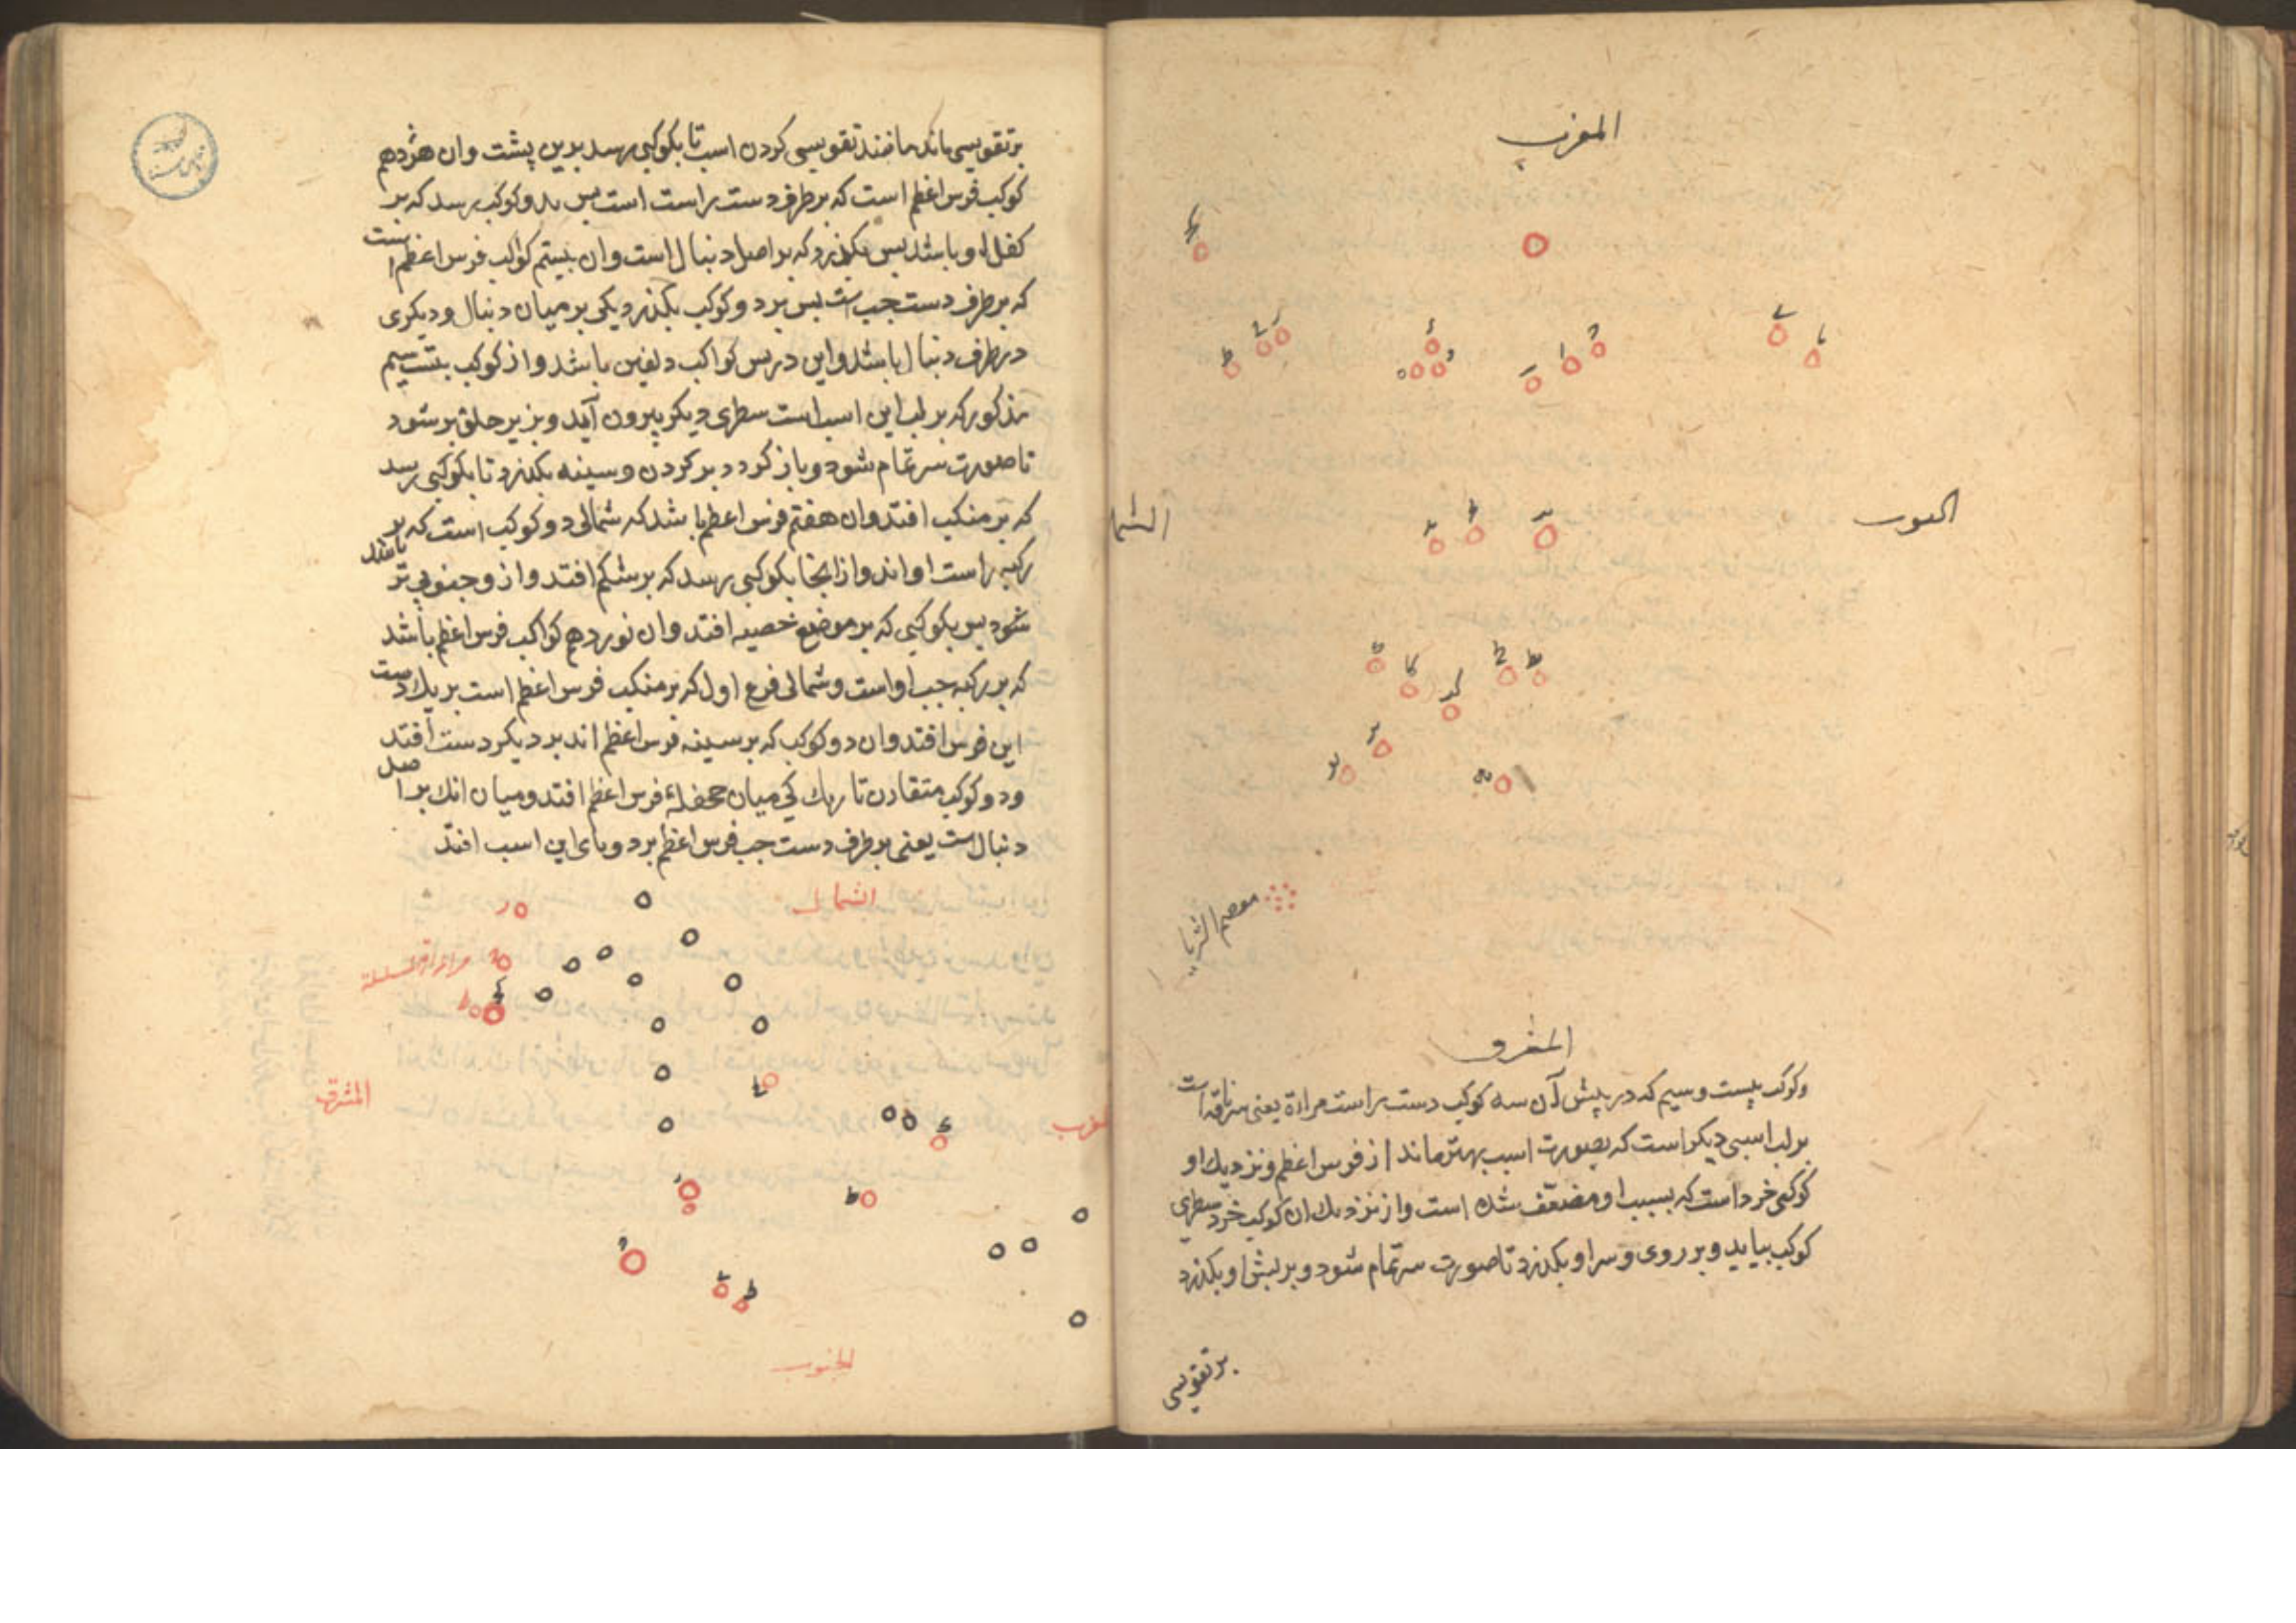 المغرب
الجنوب
الشما
معصم الثریا
المشرق
وکوکب بیست وسیم که در پیش آن سه کوکب دست راست مراة یعنی سر ناقه است
بر لب اسبی دیکر است که بصورت اسب بهتر ماند از فرس اعظم ونزدیك او
کوکبی خرد است که بسبب او مضعّف شده است واز نزدیك ان کوکب خرد سطری
کوکب بیاید وبر روی وسر او بکذرد تا صورت سر تمام شود وبر بش او بکذرد
بر تقویسی
بر تقویسی مانکه مانند تقویسی کردن است تا بکوکبی رسد بدین پشت وان هژدهم
کوکب فرس اعظم است که بر طرف دست راست است بس بدو کوکب رسد که بر
کفل او باشد بس بکذرد که بر اصل دنبال است وان بیستم کواکب فرس اعظم است
که بر طرف دست جب است بس بر دو کوکب بکذرد یکی بر میان دنبال ودیکری
در طرف دنبال باشد واین در بس کواکب دلفین باشد واز کوکب بیست سیم
مذکور که بر لب این اسب است سطری دیکر بیرون آید وبزیر حلق بر شود
تا صورت سر تمام شود وباز کردد بر کردن وسینه بکذرد تا بکوکبی رسد
که بر منکب افتد وان هفتم فرس اعظم باشد که شمالی دو کوکب است که بر
رکبه راست او اند واز انجا بکوکبی رسد که بر شکم افتد واز و جنوبی تر باشد
شود بس بکوکبی که بر موضع خصیه افتد وان نوزدهم کواکب فرس اعظم باشد
که بر رکبه جب او است وشمالی فرع اول که بر منکب فرس اعظم است بر یك دست
این فرس افتد وان دو کوکب که بر سینه فرس اعظم اند بر دیکر دست افتد
ودو کوکب متقارن تاریك کی میان جحفلهٔ فرس اعظم افتد ومیان انك بر اصل
دنبال است یعنی بر طرف دست جب فرس اعظم بر دو پای این اسب افتد
الشمال
المشرق
الجنوب